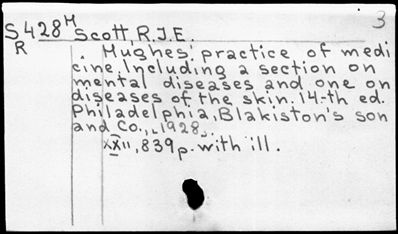 3
S428M Scott, R.J.E.
R . Hughes' practice of medi
cine, Including a section on
mental diseases and one on
diseases of the skin. 14-th ed.
Philadelphia, Blakiston's son
and Co., 1928.
XXII, 839 p. with ill.